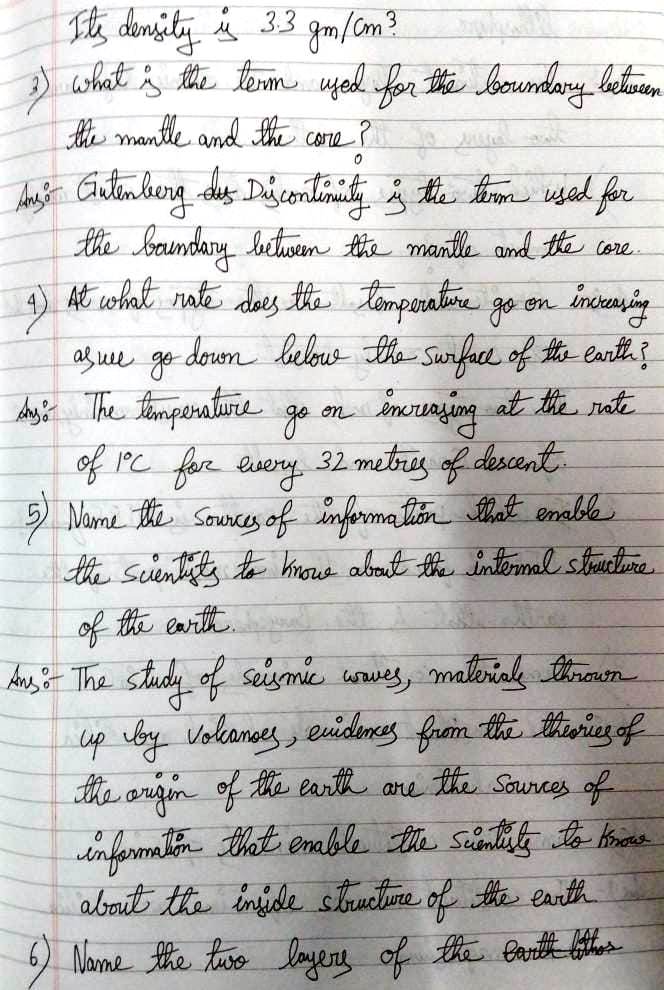 Its density is 3.3 gm/cm³
3) what is the term used for the boundary between
the mantle and the core?
Ans:- Gutenberg dis Discontinuity is the term used for
the boundary between the mantle and the core.
4) At what rate does the temperature go on increasing
as we go down below the surface of the earth?
Ans:- The temperature go on increasing at the rate
of 1°C for every 32 metres of descent.
5) Name the sources of information that enable
the scientists to know about the internal structure
of the earth.
Ans:- The study of seismic waves, materials thrown
up by volcanoes, evidences from the theories of
the origin of the earth are the sources of
information that enable the scientists to know
about the inside structure of the earth
6) Name the two layers of the earth lithos